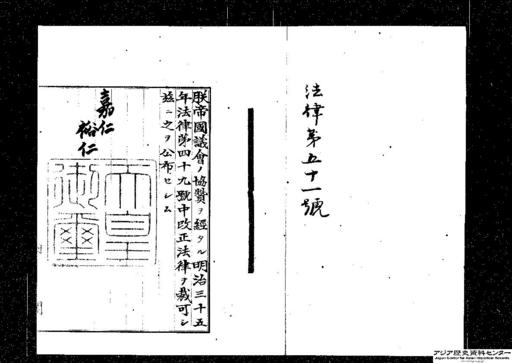 法律第五十一號
朕帝國議會ノ協贊ヲ經タル明治三十五
年法律第四十九號中改正法律ヲ裁可シ
茲ニ之ヲ公布セシム
嘉仁
裕仁
天皇
御璽
アジア歴史資料センター
Japan Center for Asian Historical Records